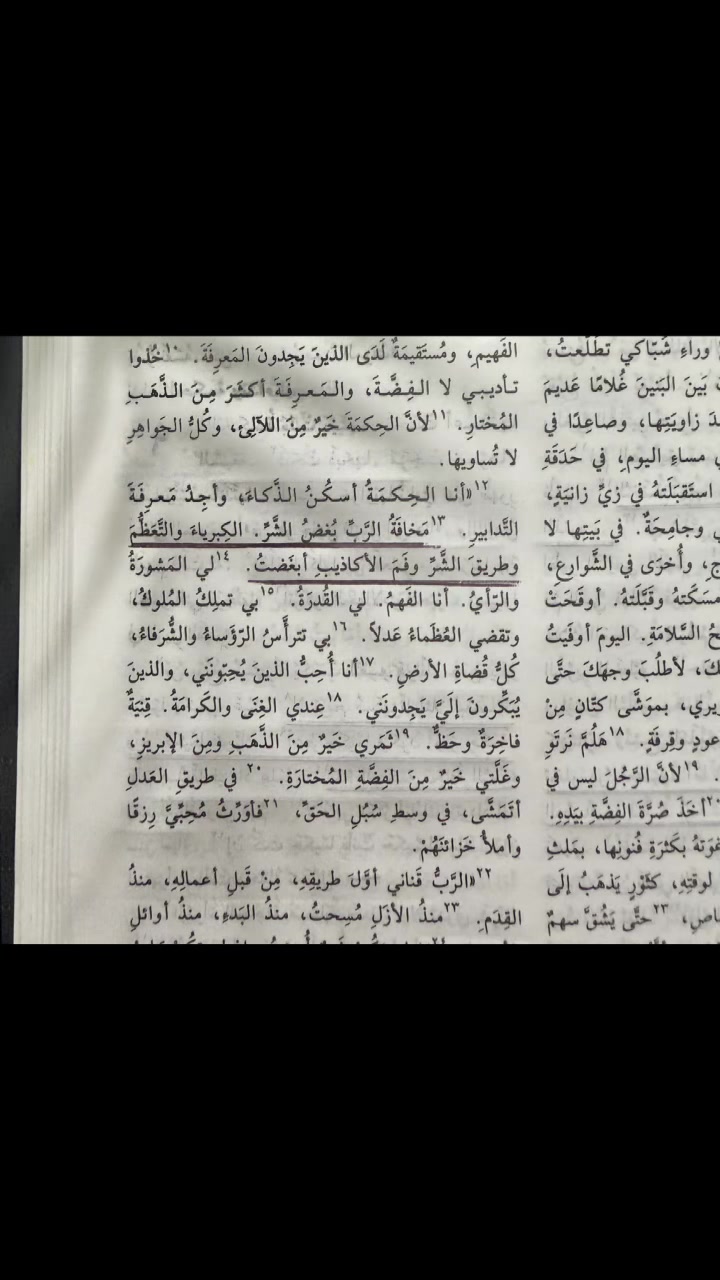 وراءِ شُبّاكي تطَلَّعتُ،
بَينَ البَنينَ غُلامًا عَديمَ
زاويَتِها، وصاعِدًا في
مساءِ اليومِ، في حَدَقَةِ
استَقبَلَتهُ في زيِّ زانيَةٍ،
وجامِحَةٌ. في بَيتِها لا
وأُخرَى في الشَّوارِعِ،
وقَبَّلَتهُ. أوقَحَتْ
السَّلامَةِ. اليومَ أوفَيتُ
لأطلُبَ وجهَكَ حتَّى
بموَشَّى كتّانٍ مِنْ
وقِرفَةٍ. ١٨هَلُمَّ نَرتَوِ
١٩لأنَّ الرَّجُلَ ليس في
أخَذَ صُرَّةَ الفِضَّةِ بيَدِهِ.
بكَثرَةِ فُنونِها، بمَلثِ
لوقتِهِ، كثَوْرٍ يَذهَبُ إلَى
٢٣حتَّى يَشُقَّ سهمٌ
الفَهيمِ، ومُستَقيمَةٌ لَدَى الذينَ يَجِدونَ المَعرِفَةَ. ١٠خُذوا
تأديبي لا الفِضَّةَ، والمَعرِفَةَ أكثَرَ مِنَ الذَّهَبِ
المُختارِ. ١١لأنَّ الحِكمَةَ خَيرٌ مِنَ اللآلِئِ، وكُلُّ الجَواهِرِ
لا تُساويها.
١٢«أنا الحِكمَةُ أسكُنُ الذَّكاءَ، وأجِدُ مَعرِفَةَ
التَّدابيرِ. ١٣مَخافَةُ الرَّبِّ بُغضُ الشَّرِّ. الكِبرياءَ والتَّعَظُّمَ
وطريقَ الشَّرِّ وفَمَ الأكاذيبِ أبغَضتُ. ١٤لي المَشورَةُ
والرّأيُ. أنا الفَهمُ. لي القُدرَةُ. ١٥بي تملِكُ المُلوكُ،
وتقضي العُظَماءُ عَدلاً. ١٦بي تترأَّسُ الرّؤَساءُ والشُّرَفاءُ،
كُلُّ قُضاةِ الأرضِ. ١٧أنا أُحِبُّ الذينَ يُحِبّونَني، والذينَ
يُبَكِّرونَ إلَيَّ يَجِدونَني. ١٨عِندي الغِنَى والكَرامَةُ. قِنيَةٌ
فاخِرَةٌ وحَظٌّ. ١٩ثَمَري خَيرٌ مِنَ الذَّهَبِ ومِنَ الإبريزِ،
وغَلَّتي خَيرٌ مِنَ الفِضَّةِ المُختارَةِ. ٢٠في طريقِ العَدلِ
أتَمَشَّى، في وسطِ سُبُلِ الحَقِّ، ٢١فأوَرِّثُ مُحِبّيَّ رِزقًا
وأملأُ خَزائنَهُمْ.
٢٢«الرَّبُّ قَناني أوَّلَ طريقِهِ، مِنْ قَبلِ أعمالِهِ، منذُ
القِدَمِ. ٢٣منذُ الأزَلِ مُسِحتُ، منذُ البَدءِ، منذُ أوائلِ